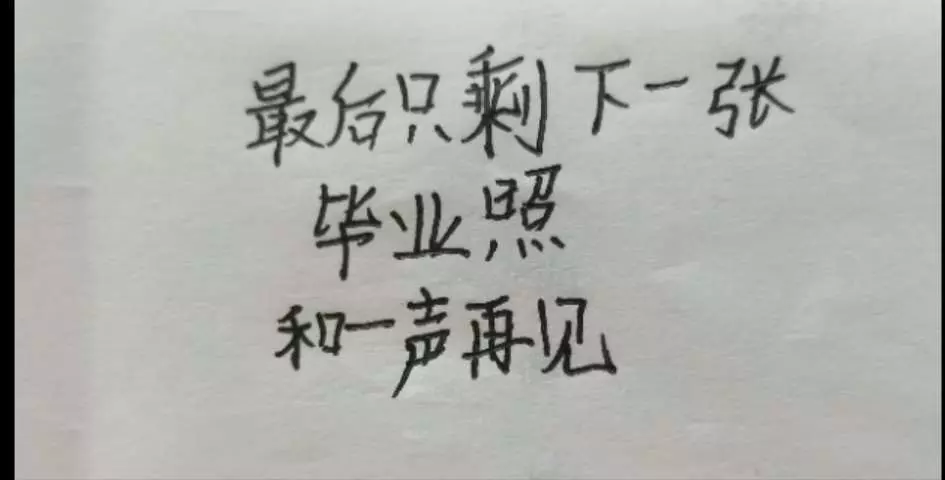 最后只剩下一张
毕业照
和一声再见